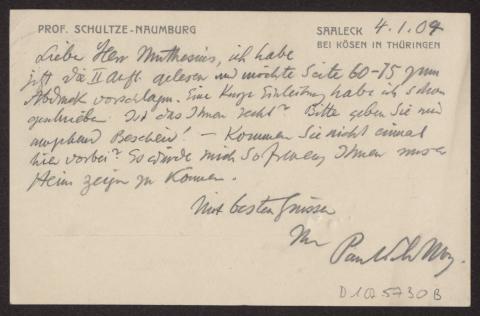 PROF. SCHULTZE-NAUMBURG
SAALECK 4.1.04
BEI KÖSEN IN THÜRINGEN
Lieber Herr Muthesius, ich habe
jetzt die II Aufl. gelesen und möchte Seite 60-75 zum
Abdruck vorschlagen. Eine kurze Einleitung habe ich schon
geschrieben. Ist das Ihnen recht? Bitte geben Sie mir
umgehend Bescheid! – Kommen Sie nicht einmal
hier vorbei? Es würde mich so freuen, Ihnen unser
Heim zeigen zu können.
Mit besten Grüssen
Ihr
D 102 5730 B